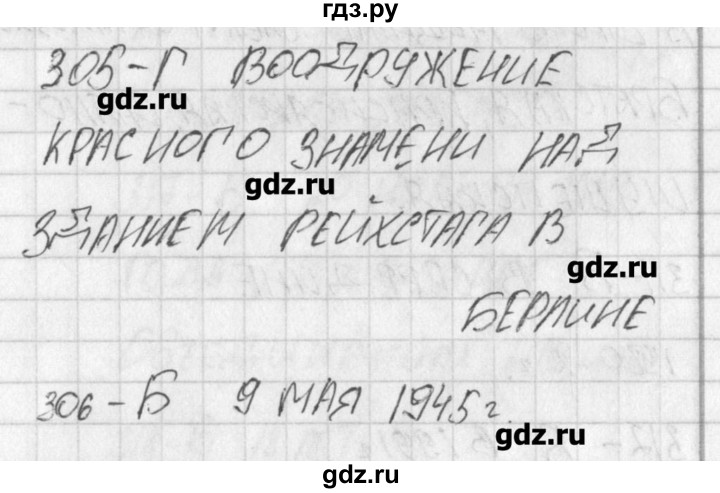 гдз.ру
305-Г ВООДРУЖЕНИЕ
gdz.ru
КРАСНОГО ЗНАМЕНИ НАД
gdz.ru
ЗДАНИЕМ РЕЙХСТАГА В
gdz.ru
БЕРЛИНЕ
306-Б 9 МАЯ 1945 г.
gdz.ru
gdz.ru